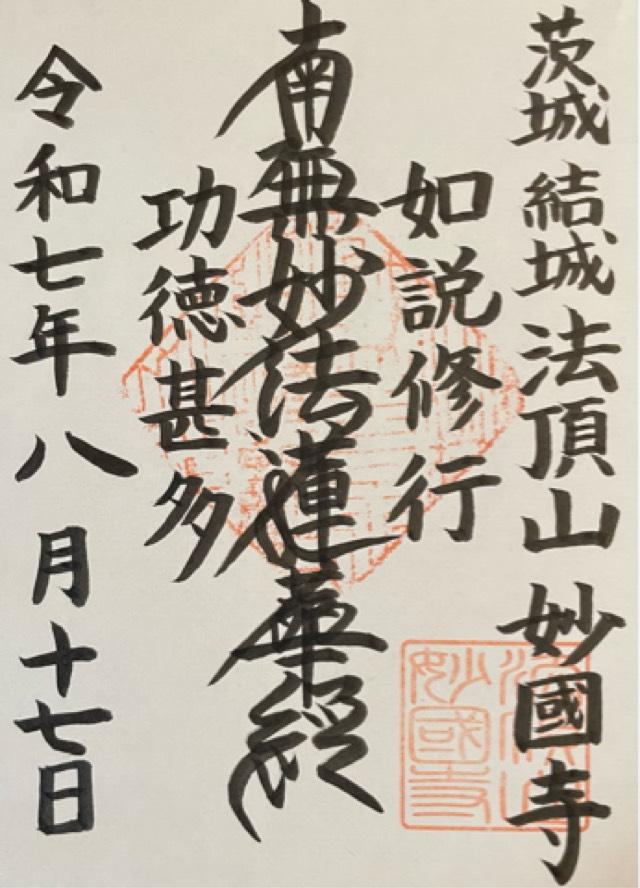 茨城 結城 法頂山 妙國寺
如説修行
南無妙法蓮華経
功徳甚多
令和七年 八月十七日
妙國寺